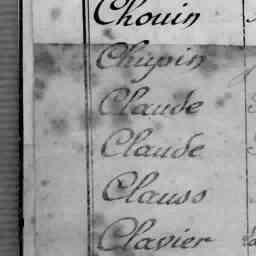 Chouin
Chupin
Claude
Claude
Clauss
Clavier